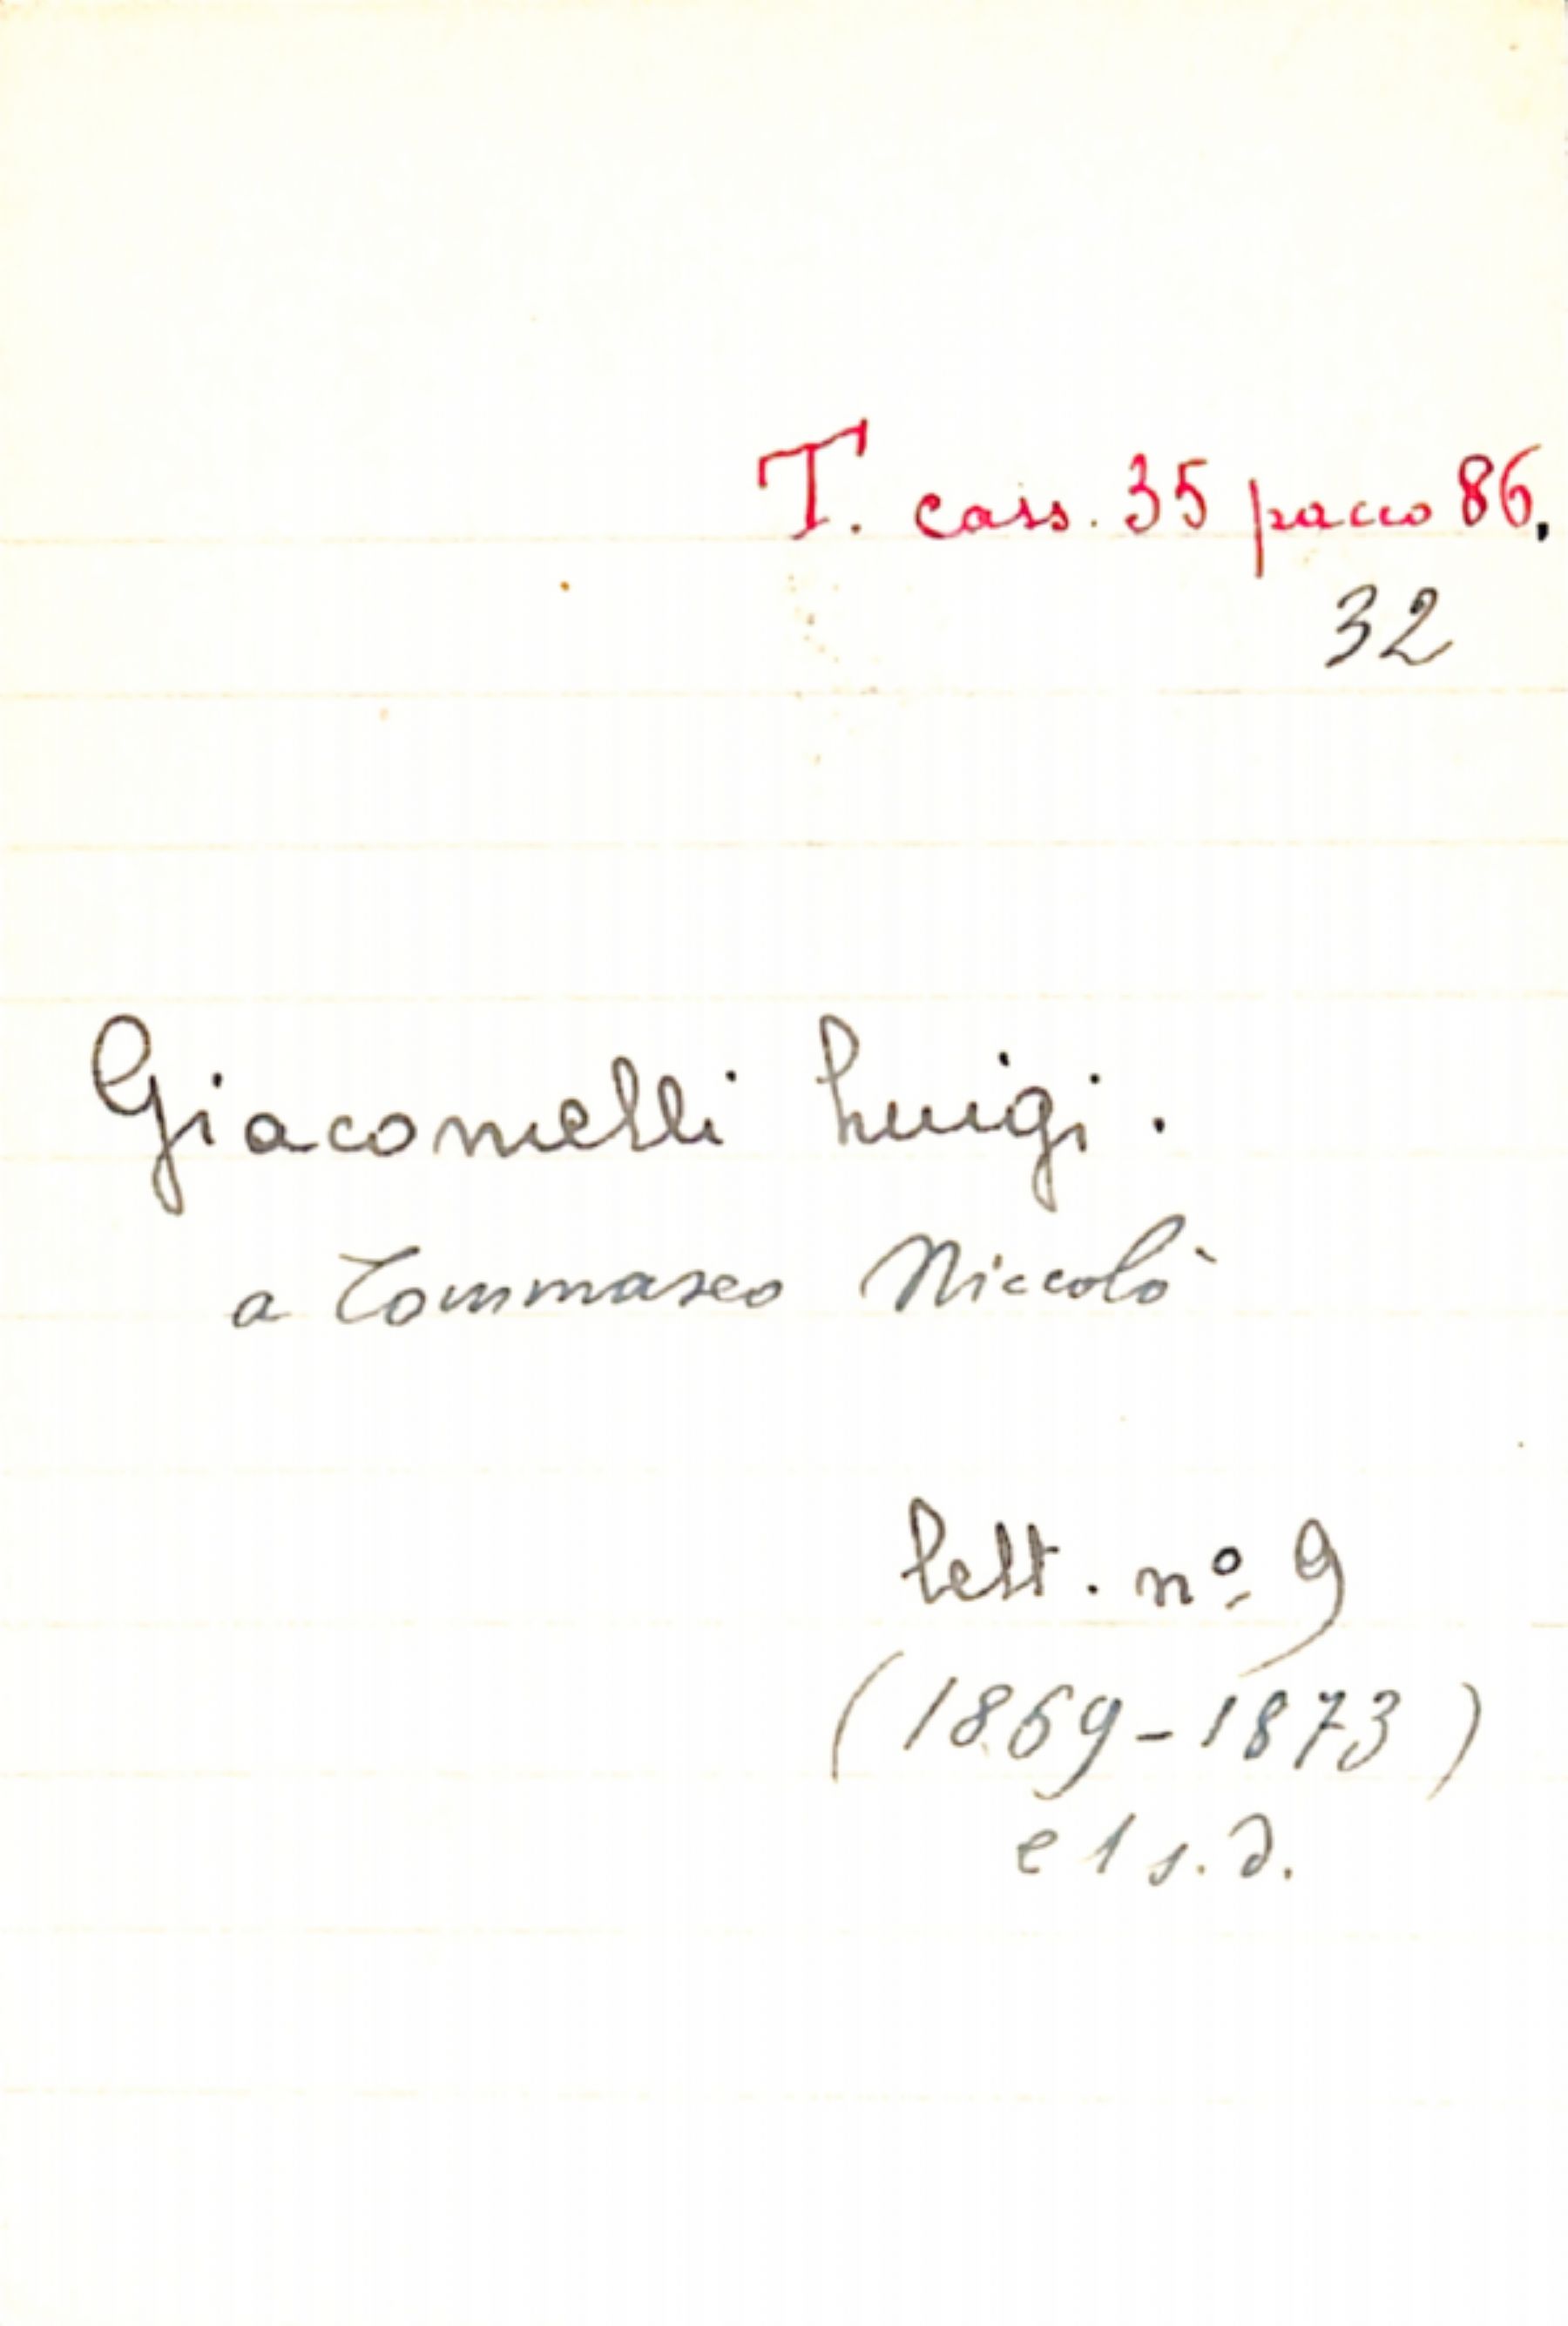 T. cass. 35 pacco 86.
32
Giacomelli Luigi.
a Tommaseo Niccolò
lett. nº 9
(1869-1873)
e 1 s.d.